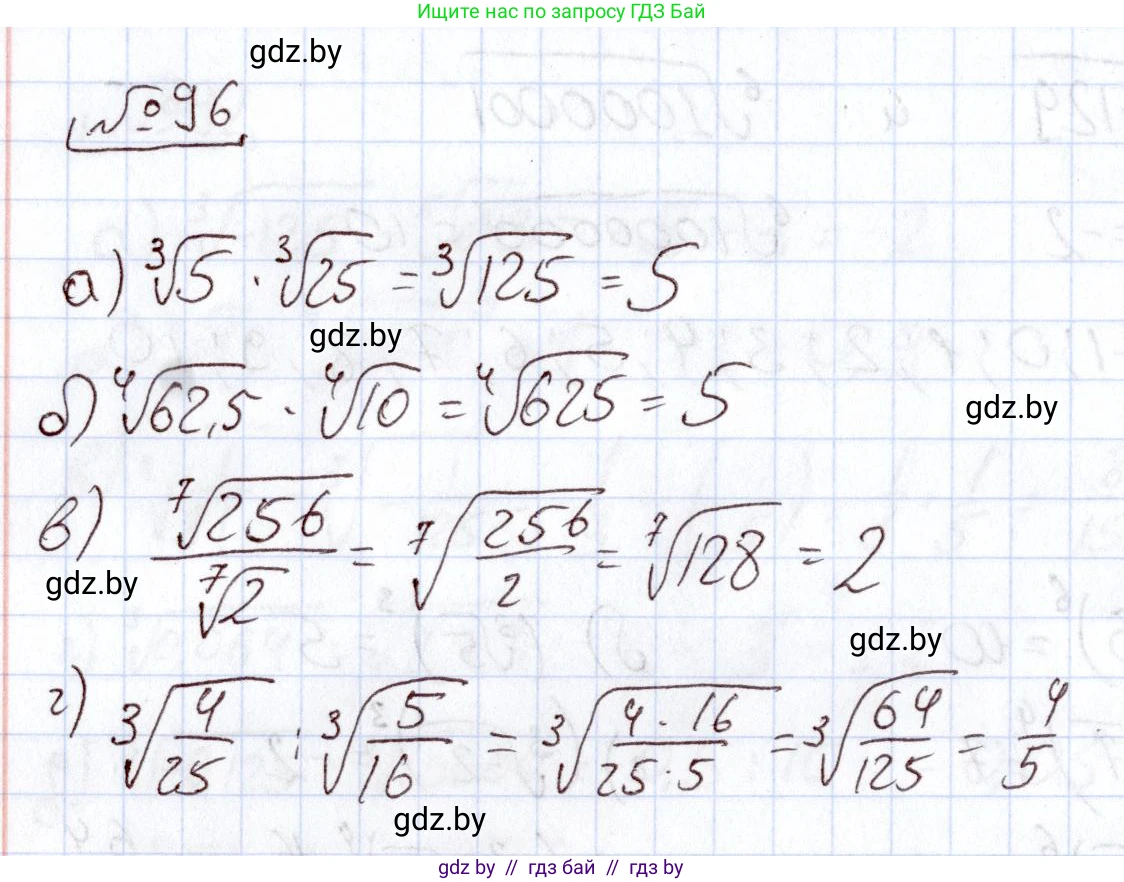 Ищите нас по запросу ГДЗ Бай
gdz.by
№96
а) ∛5 · ∛25 = ∛125 = 5
gdz.by
б) ∜62,5 · ∜10 = ∜625 = 5
gdz.by
в) ⁷√256 / ⁷√2 = ⁷√(256/2) = ⁷√128 = 2
gdz.by
gdz.by
г) ∛(4/25) : ∛(5/16) = ∛(4·16/25·5) = ∛(64/125) = 4/5
gdz.by
gdz.by // гдз бай // гдз by